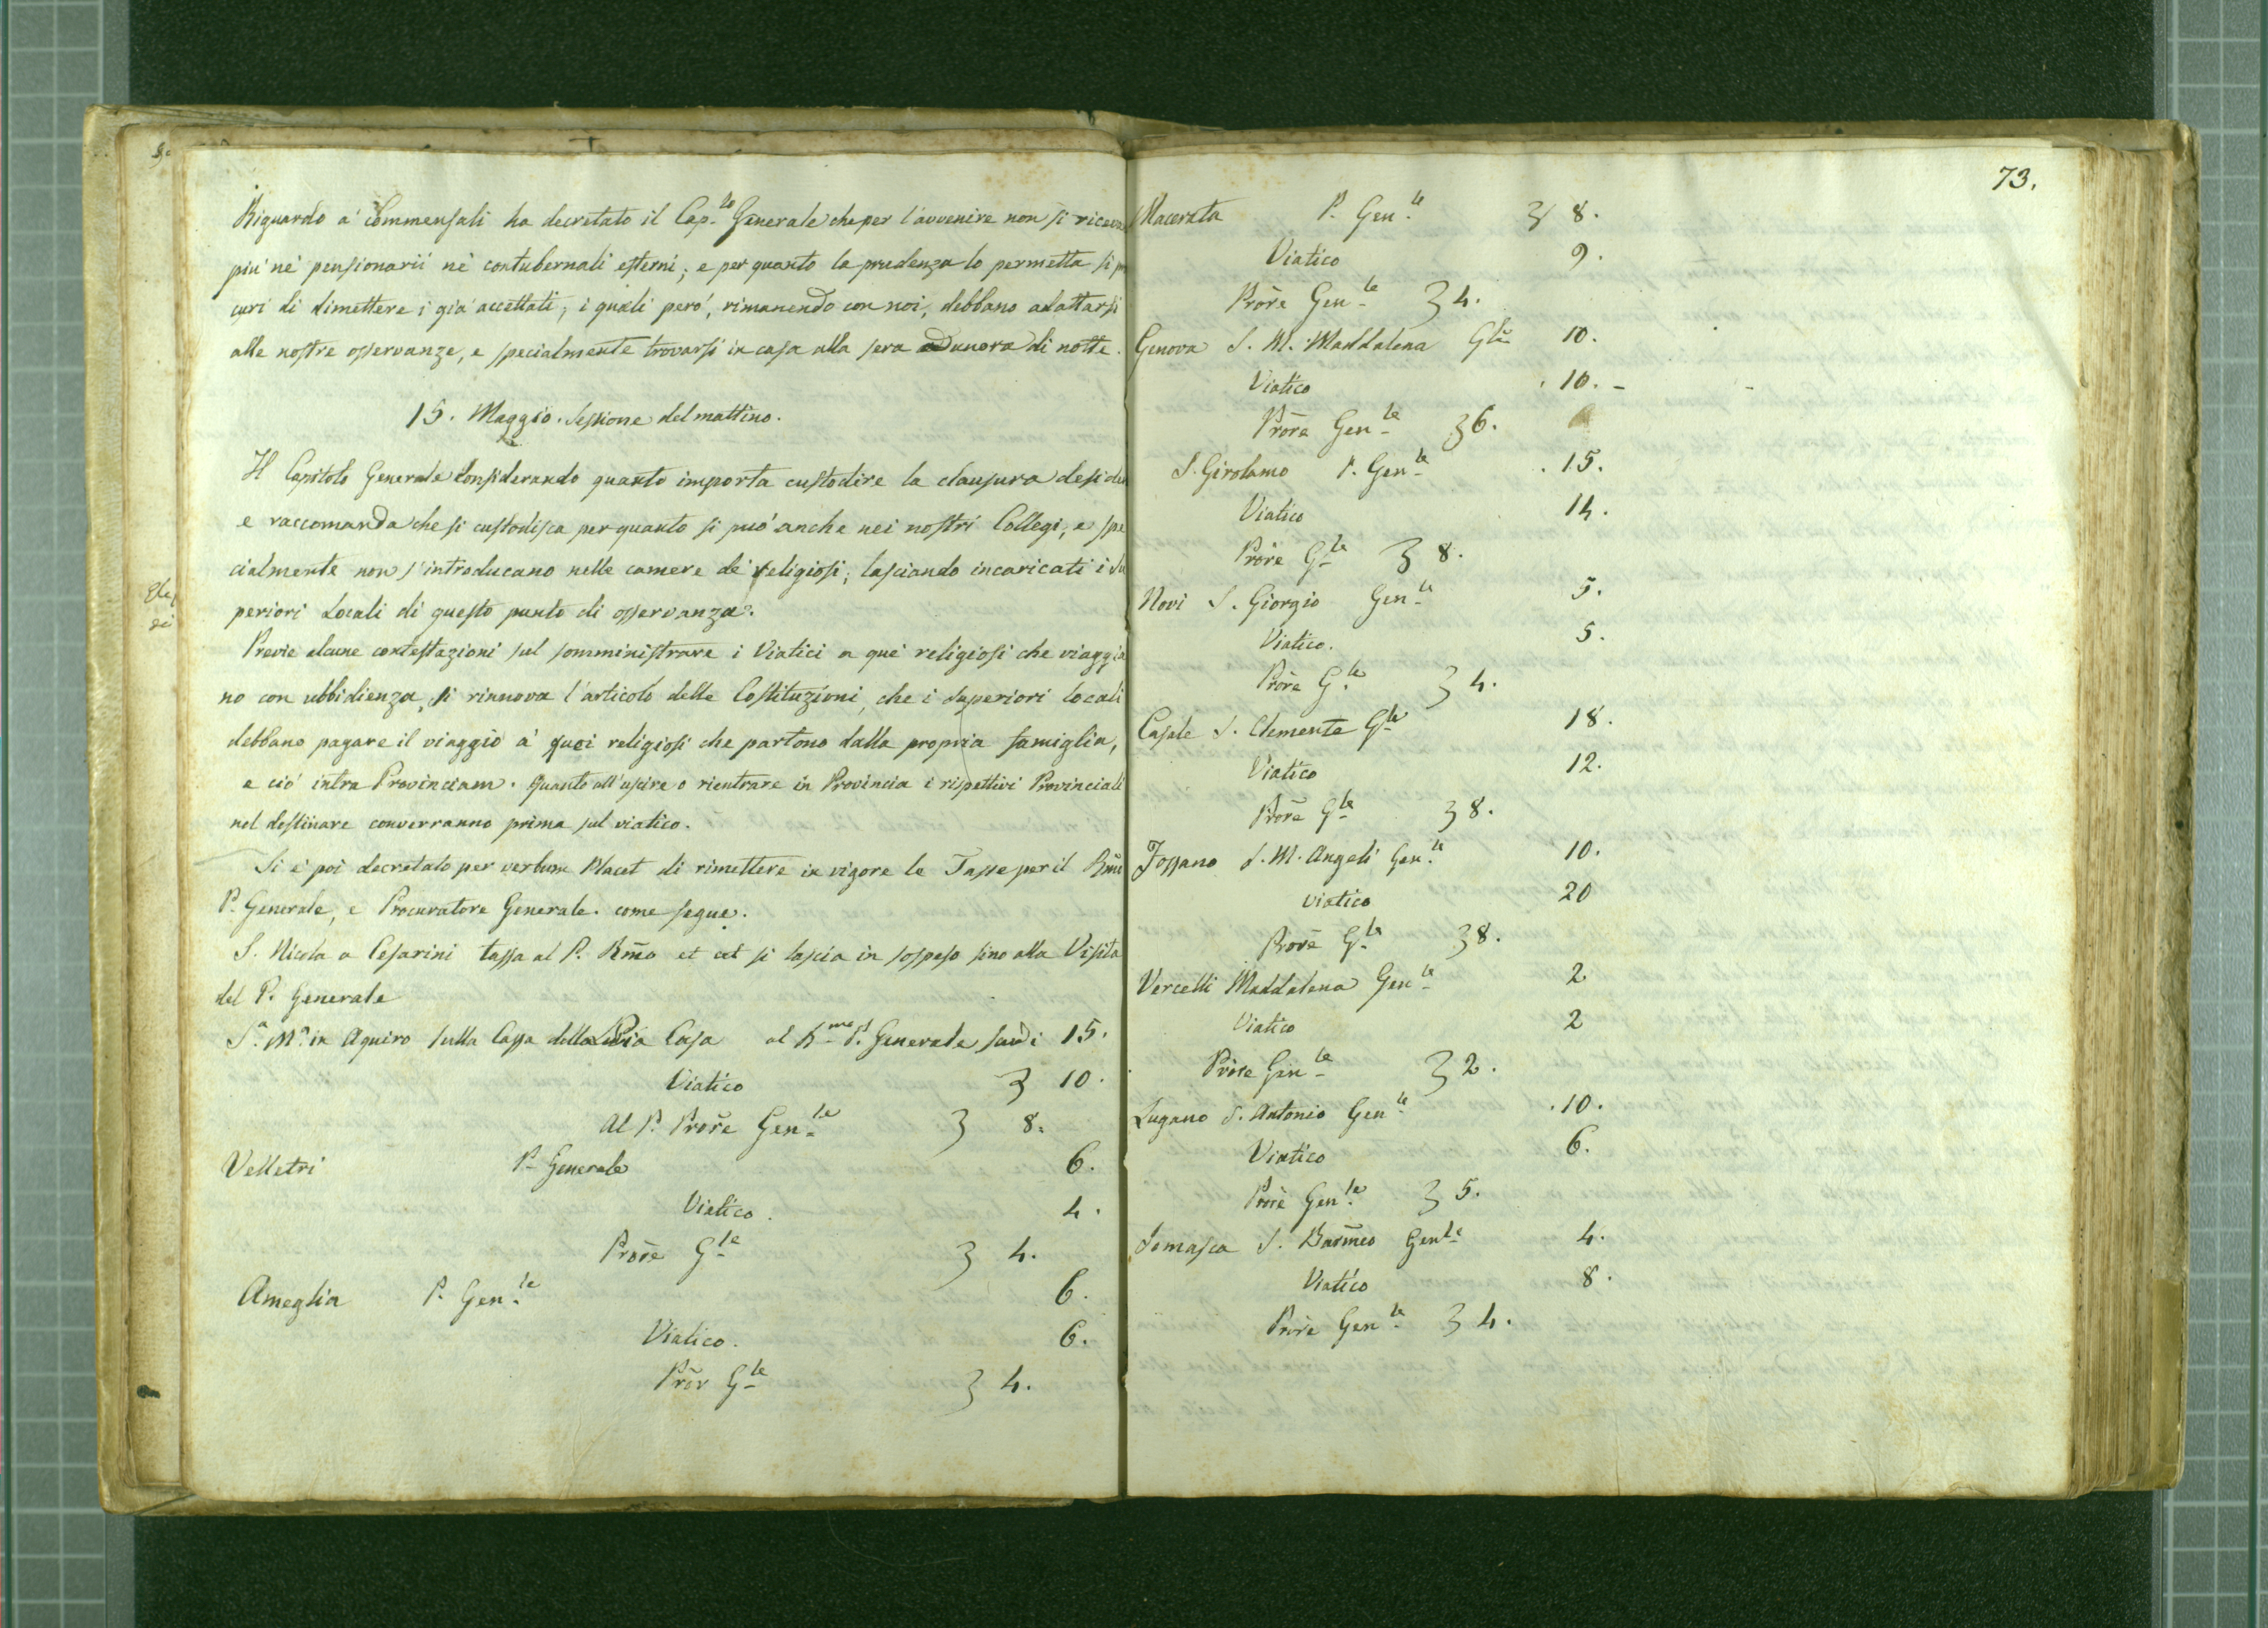 Riguardo a' Commensali ha decretato il Cap.lo Generale che per l'avvenire non si riceva
piu' ne' pensionarii ne' contubernali esterni; e per quanto la prudenza lo permetta si p
curi di dimettere i gia' accettati, i quali pero', rimanendo con noi, debbano adattarsi
alle nostre osservanze, e specialmente trovarsi in casa alla sera ad unora di notte.
15. Maggio. Sessione del mattino.
Il Capitolo Generale Considerando quanto importa custodire la clausura deside
e raccomanda che si custodisca per quanto si può anche nei nostri Collegi, e spe
cialmente non s'introducano nelle camere de' religiosi; lasciando incaricati i Su
periori Locali di questo punto di osservanza.
Previe alcune contestazioni sul somministrare i Viatici a que' religiosi che viaggia
no con ubbidienza, si rinnova l'articolo delle Costituzioni, che i superiori locali
debbano pagare il viaggio a' quei religiosi che partono dalla propria famiglia,
e ciò intra Provinciam. Quanto all'uscire o rientrare in Provincia i rispettivi Provinciali
nel destinare converranno prima sul viatico.
Si e' poi decretato per verbum Placet di rimettere in vigore le Tasse per il Rmo
P. Generale, e Procuratore Generale. come segue.
S. Nicola a Cesarini tassa al P. Rmo et cet si lascia in sospeso sino alla Visita
del P. Generale
S.a M.a in Aquiro sulla Cassa della Pia Casa al R.mo P. Generale scudi 15.
Viatico 3 10.
Al P. Prore Gen.le 3 8.
Velletri P. Generale 6.
Viatico. 4.
Prore G.le 3 4.
Ameglia P. Gen.le 6.
Viatico. 6.
Pror G.le 3 4.
73.
Macerata P. Gen.le 3 8.
Viatico 9.
Prore Gen.le 3 4.
Genova S. M. Maddalena Gle 10.
Viatico 10.
Prore Gen.le 3 6.
S. Girolamo P. Gen.le 15.
Viatico 14.
Prore G.le 3 8.
Novi S. Giorgio Gen.le 5.
Viatico. 5.
Prore G.le 3 4.
Casale S. Clemente G.le 18.
Viatico 12.
Prore G.le 3 8.
Fossano S. M. Angeli Gen.le 10.
viatico 20
Prore G.le 3 8.
Vercelli Maddalena Gen.le 2
Viatico 2
Prore Gen.le 3 2.
Lugano S. Antonio Gen.le 10.
Viatico 6.
Prore Gen.le 3 5.
Somasca S. Barmeo Gen.le 4.
Viatico 8.
Prore Gen.le 3 4.